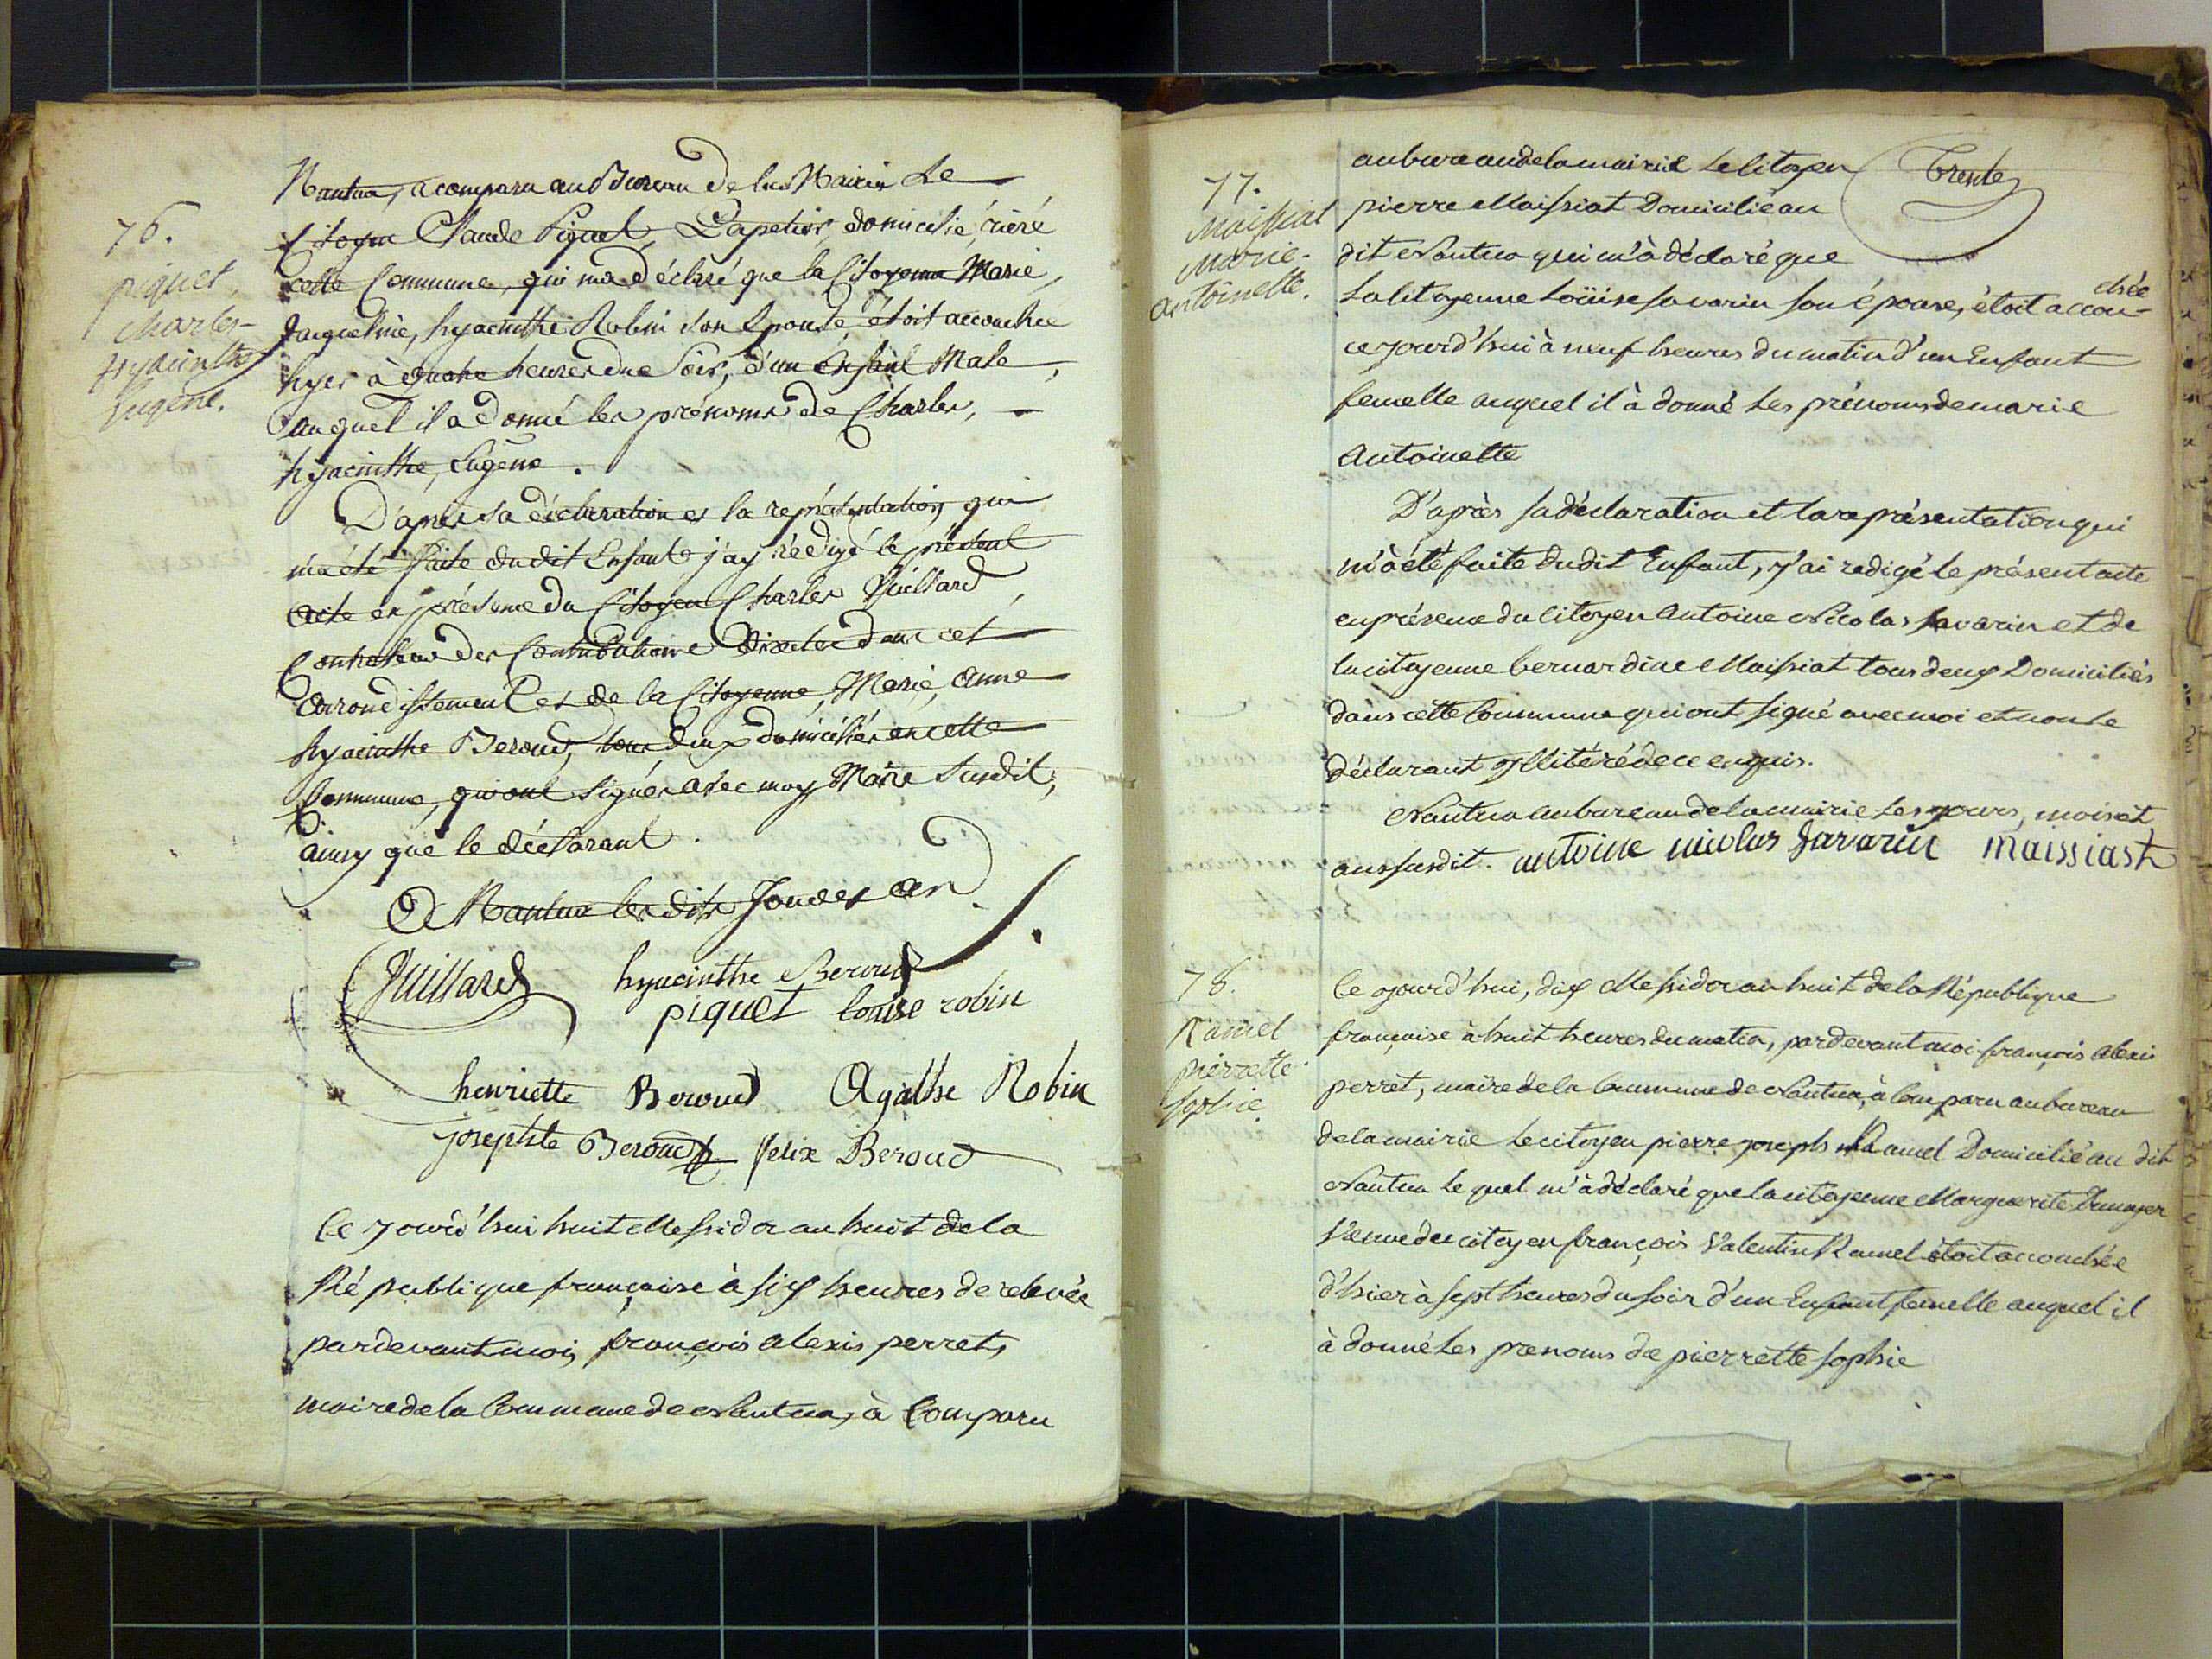 76.
piquet,
charles-
hyacinthe
Eugene.
Nantua, a comparu au Bureau de la Mairie Le
Citoyen Claude Piquet, Papetier, domicilié, rière
cette Commune, qui m'a déclaré que la Citoyenne Marie,
Jacqueline, hyacinthe Robin son Epouse, étoit accouchée
hyer à quatre heures du Soir, d'un Enfant Male,
auquel il a donné les prénoms de Charles,
hyacinthe, Eugène.
D'après sa déclaration et la représentation qui
m'a été faite du dit Enfant j'ay rédigé le présent
acte en présence du Citoyen Charles Juillard,
Controleur des Contributions directes dans cet
arrondissement et de la Citoyenne, Marie, anne
hyacinthe Beroud, tous deux domiciliés en cette
Commune, qui ont Signés avec moy Maire Susdit,
ainsy que le déclarant.
A Nantua les dits Jour et an
Juillard hyacinthe Beroud
piquet louise robin
henriette Beroud Agathe Robin
josephte Beroud felix Beroud
Ce jourd'hui huit Messidor an huit de la
République française à six heures de relevée
pardevant moi, françois alexis perret,
maire de la Commune de Nantua, à Comparu
Trente
77.
Maissiat
Marie-
antoinette.
au bureau de la mairie Le Citoyen
pierre Maissiat Domicilié au
dit Nantua qui m'à déclaré que
La Citoyenne Loüise Savarin son épouse, étoit accou-
chée
ce jourd'hui à neuf heures du matin d'un Enfant
femelle auquel il à donné Les prénoms de marie
Antoinette
D'après sa déclaration et la représentation qui
m'à été faite dudit Enfant, j'ai redigé le présent acte
en présence du Citoyen Antoine Nicolas Savarin et de
la citoyenne bernardine Maissiat tous deux Domiciliés
dans cette Commune qui ont signé avec moi et non le
déclarant Illitéré de ce enquis.
Nantua au bureau de la mairie Les jours, mois et
an susdit. antoine nicolas Savarin maissiast
78.
Ramel
pierrette
Sophie.
Ce jourd'hui, dix Messidor an huit de la République
française à huit heures du matin, pardevant moi françois alexis
perret, maire de la Commune de Nantua, à Comparu au bureau
de la mairie Le citoyen pierre joseph Ramel Domicilié au dit
Nantua Le quel m'à déclaré que la citoyenne Marguerite
Veuve du citoyen françois Valentin Ramel étoit accouchée
d'hier à sept heures du soir d'un Enfant femelle auquel il
à donné Les prenoms de pierrette sophie